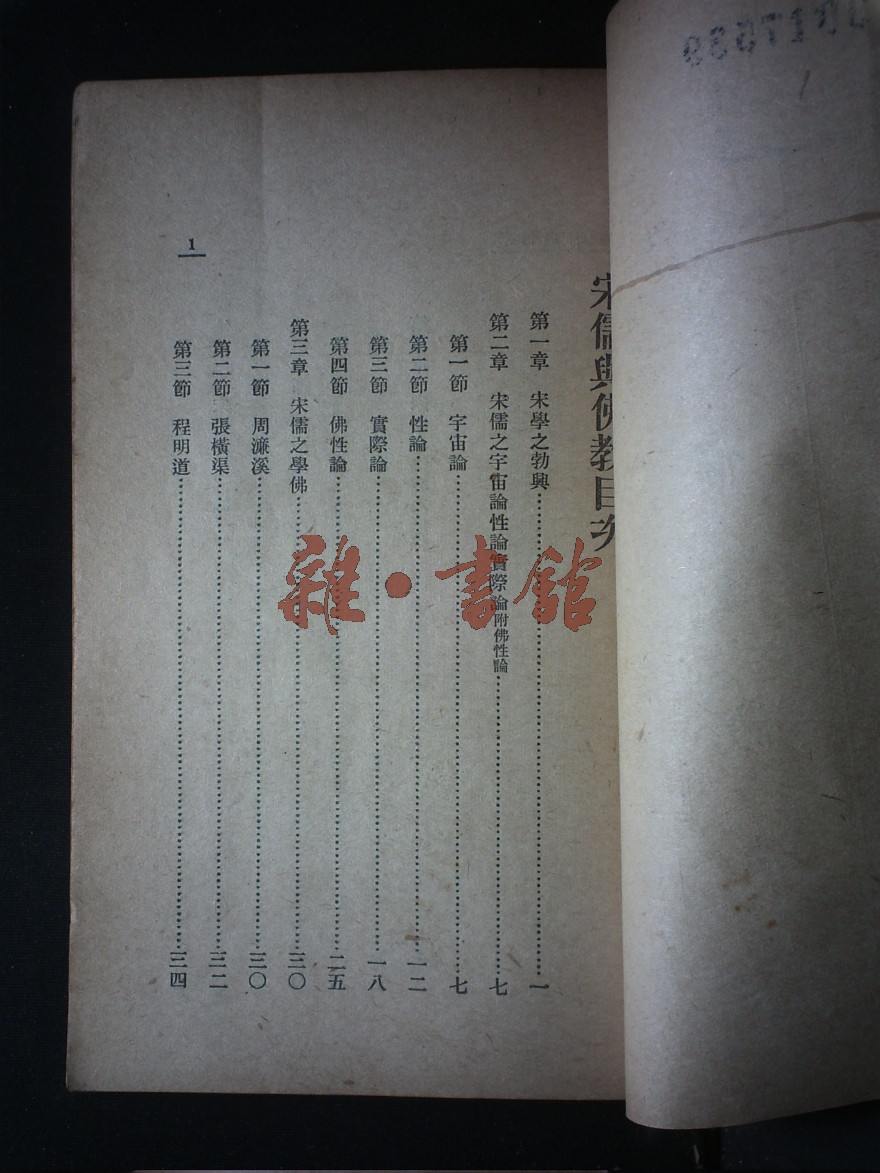 宋儒與佛教目次
第一章 宋學之勃興……一
第二章 宋儒之宇宙論性論實際論附佛性論……七
第一節 宇宙論……七
第二節 性論……一二
第三節 實際論……一八
第四節 佛性論……二五
第三章 宋儒之學佛……三〇
第一節 周濂溪……三〇
第二節 張橫渠……三二
第三節 程明道……三四
1
雜·書館